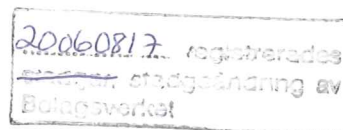 20060817 registrerades
stadgar, stadgeändring av
Bolagsverket